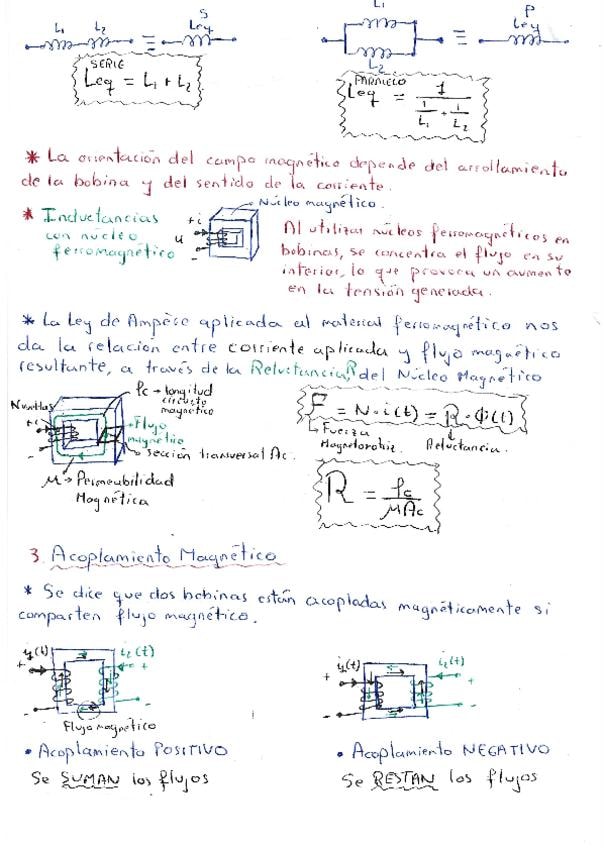 L₁ L₂ ≡ S Leq
L₁ L₂ ≡ P Leq
SERIE
Leq = L₁ + L₂
PARALELO
Leq = 1 / (1/L₁ + 1/L₂)
* La orientación del campo magnético depende del arrollamiento
de la bobina y del sentido de la corriente.
* Inductancias
con núcleo
ferromagnético
+i
u
-
Núcleo magnético.
Al utilizar núcleos ferromagnéticos en
bobinas, se concentra el flujo en su
interior, lo que provoca un aumento
en la tensión generada.
* La Ley de Ampère aplicada al material ferromagnético nos
da la relación entre corriente aplicada y flujo magnético
resultante, a través de la Reluctancia, R del Núcleo Magnético
N vueltas
+i
-
lc → longitud
circuito
magnético
→ Flujo
magnético
sección transversal Ac.
μ → Permeabilidad
Magnética
F = N·i(t) = R·Φ(t)
↳ Fuerza
Magnetomotriz.
↓
Reluctancia.
R = lc / μAc
3. Acoplamiento Magnético
* Se dice que dos bobinas están acopladas magnéticamente si
comparten flujo magnético.
i₁(t) i₂(t)
+ +
- -
Flujo magnético
• Acoplamiento POSITIVO
Se SUMAN los flujos
i₁(t) i₂(t)
+ +
- -
• Acoplamiento NEGATIVO
Se RESTAN los flujos